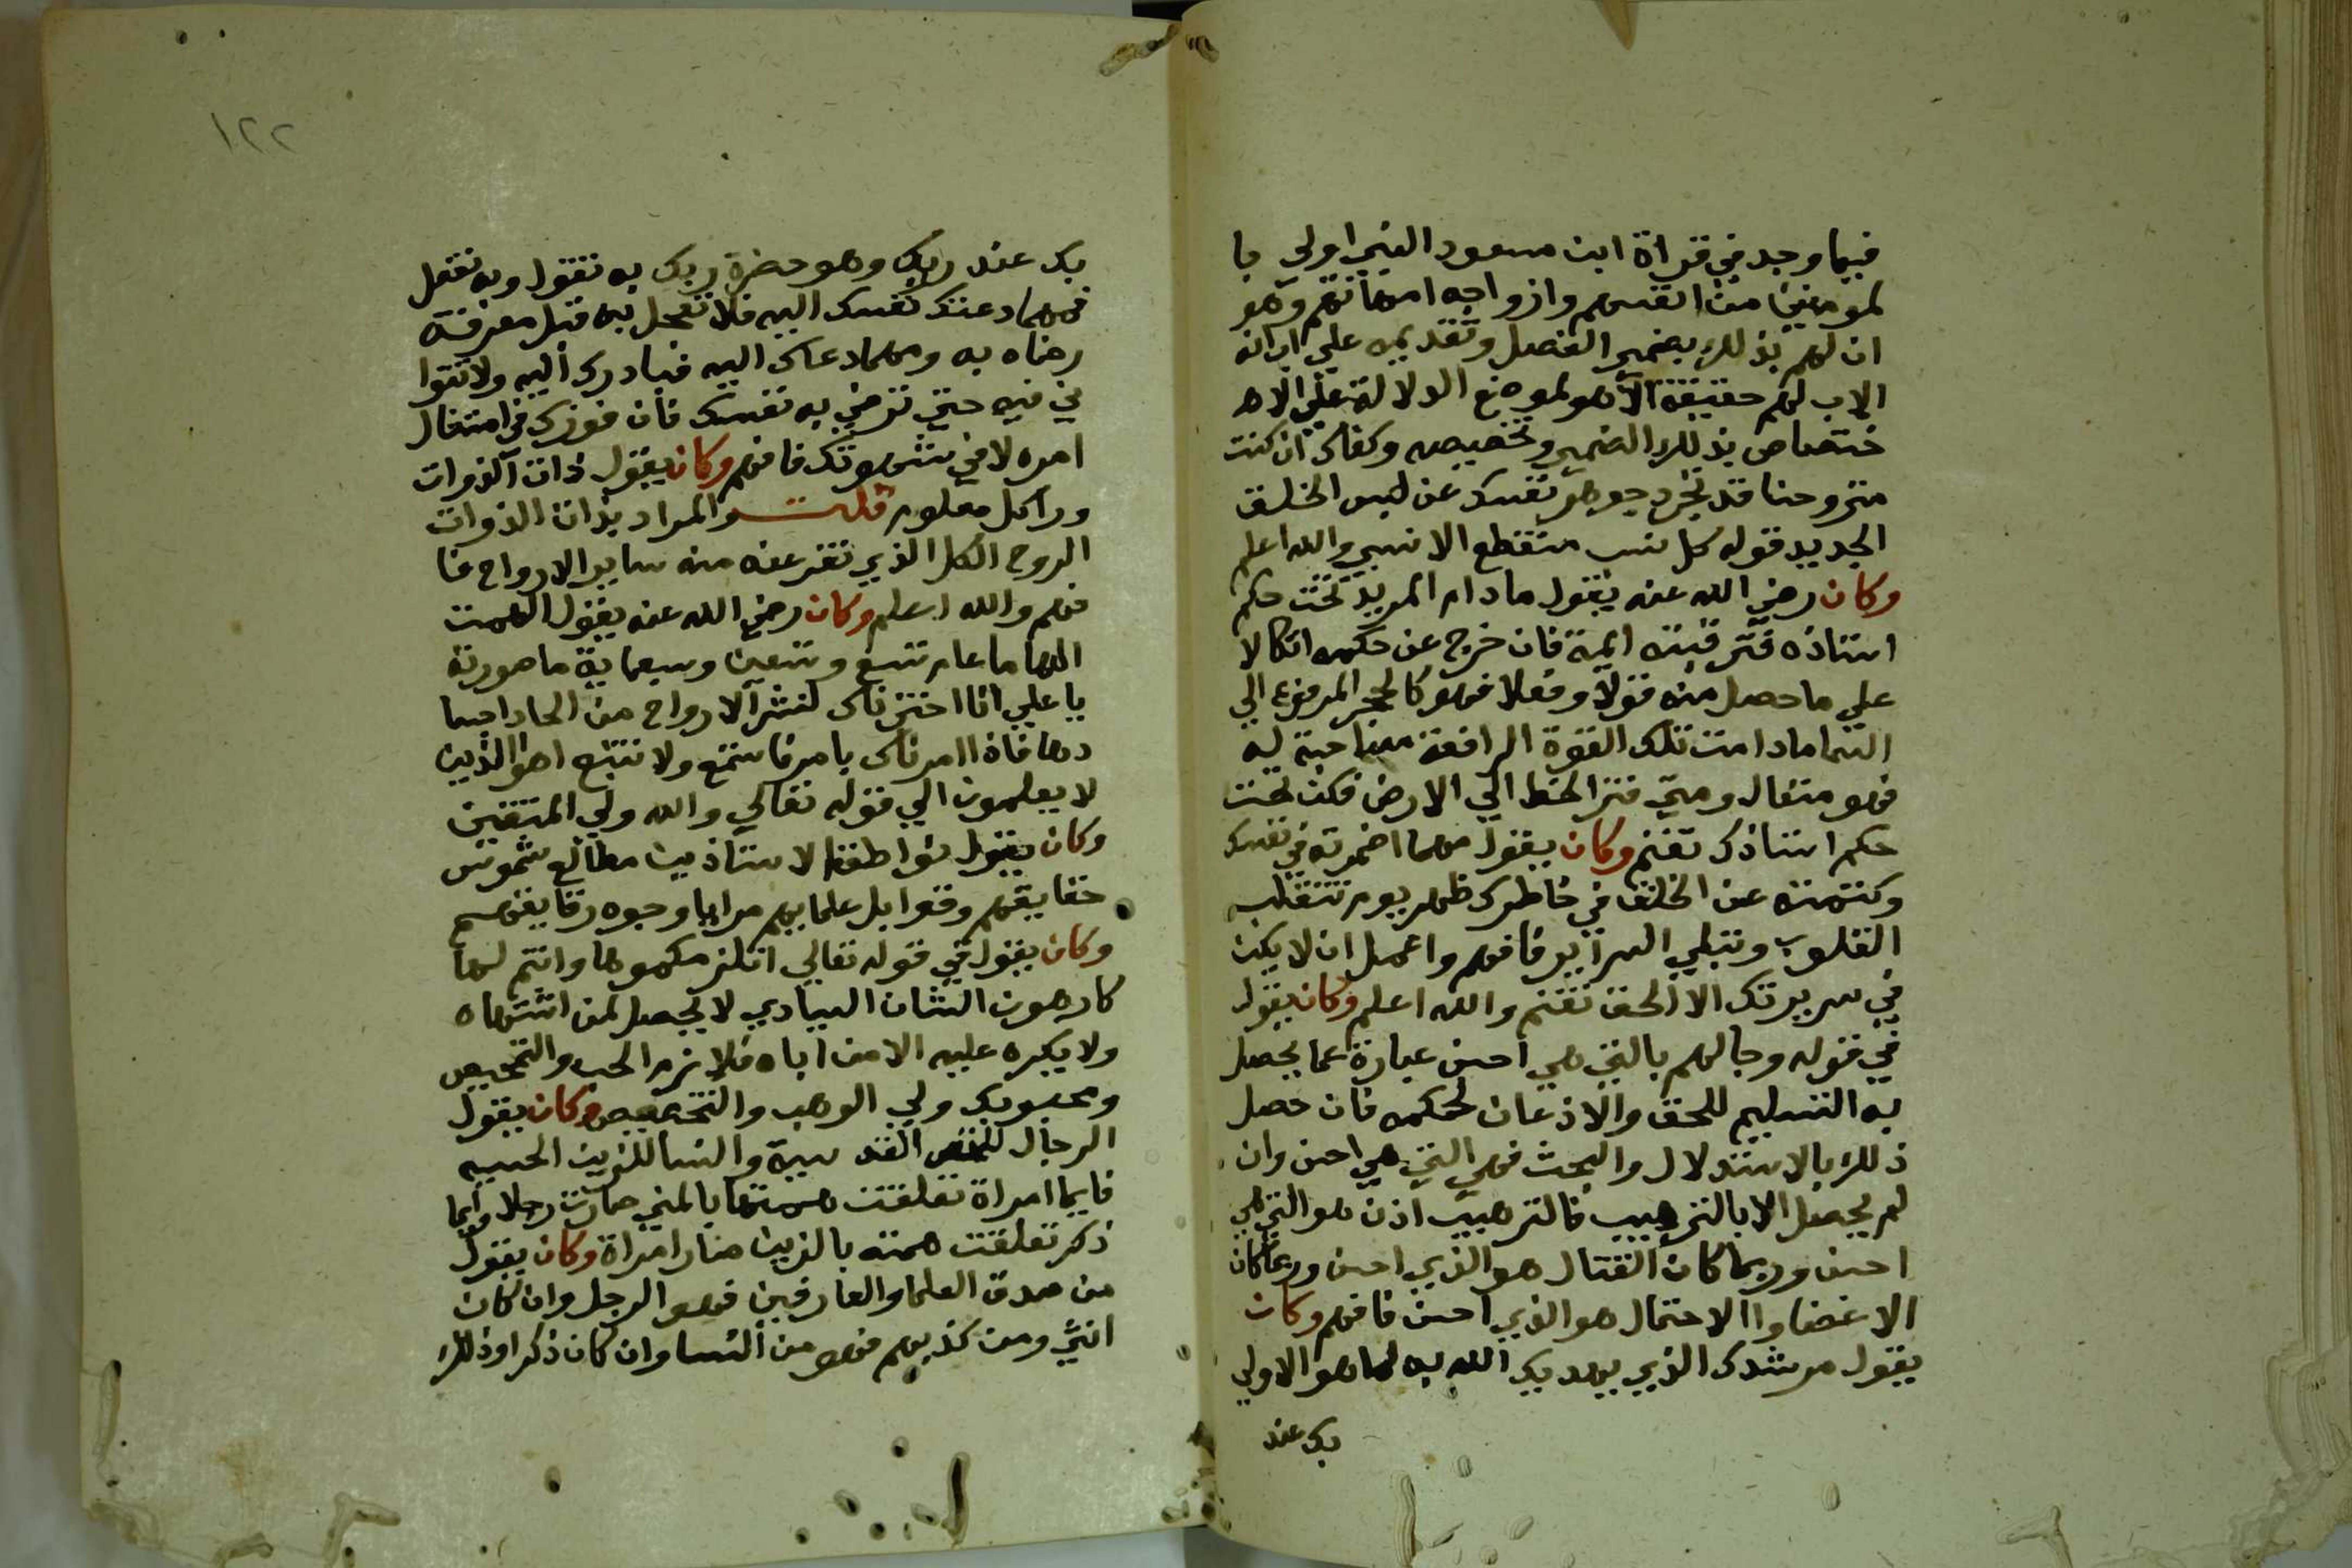 فيما وجد في قراة ابن مسعود النبي اولي با
لمومنين من انفسهم وازواجه امهاتهم وهو
اب لهم بذلك بضمير الفصل وتقديمه علي ان انه
الاب لهم حقيقة الا هو لموضع الدلالة علي الاه
ختصاص بذلك الضمير وتخصيصه وكفاك ان كنت
متروحنا قد تجرد جوهر نفسك عن لبس الخلق
الجديد قوله كل نسب منقطع الا نسبي والله اعلم
وكان رضي الله عنه يقول مادام المريد تحت حكم
استاذه فترقيته ايمة فان خرج عن حكمه اتكالا
علي ما حصل منه قولا وفعلا فهو كالحجر المرفوع الي
السما مادامت تلك القوة الرافعة مصاحبة له
فهو متعال ومتي فتر انحط الي الارض فكن تحت
حكم استاذك تغنم وكان يقول مهما اضمرته في نفسك
وكتمته عن الخلق في خاطرك ظهر يوم تتقلب
القلوب وتبلي السراير فافهم واعمل ان لا يكن
في سريرتك الا الحق تغنم والله اعلم وكان يقول
في قوله وجالهم بالتي هي احسن عبارة عما يحصل
به التسليم للحق والاذعان لحكمه فان حصل
ذلك بالاستدلال والبحث فهي التي هي احسن وان
لم يحصل الا بالترهيب فالترهيب اذن هو التي هي
احسن وربما كان القتال هو الذي احسن وربما كان
الاغضا واالاحتمال هو الذي احسن فافهم وكان
يقول مرشدك الذي يهديك الله به لما هو الاولي
بك عند
١٢٢
بك عند ربك وهو حضرة ربك به تقول وبه تفعل
فمهما دعتك نفسك اليه فلا تعجل به قبل معرفة
رضاه به ومهما دعاك اليه فبادرك اليه ولا تتوا
ني فيه حتي ترضي به نفسك فان فوزك في امتثال
امره لا في شهوتك فافهم وكان يقول ذات الذوات
ورا كل معلوم قلت والمراد بذات الذوات
الروح الكل الذي تفرعنه منه ساير الارواح فا
فهم والله اعلم وكان رضي الله عنه يقول الهمت
الهاما عام تتبع وتتعين وسبعماية ما صورته
يا علي انا اخترناك لنشر الارواح من الحاد اجسا
دها فاذا امرناك بامر فاستمع ولا تتبع اهوا الذين
لا يعلمون الي قوله تعالي والله ولي المتقين
وكان يقول نواطق الاستاذين مطالع شموس
حقايقهم وقوابل علمايهم مرايا وجوه رقايقهم
وكان يقول في قوله تعالي انلزمكموها وانتم لها
كارهون الشان السيادي لا يحصل لمن اشتهاه
ولا يكره عليه الا من اباه فلا يزم الحب والتمحيص
ومحبوبك ولي الوهب والتخصيص وكان يقول
الرجال للنفس القدسية والنسا للزين الحسيه
فايما امراة تعلقت همتها بالمني صارت رجلا وايما
ذكر تعلقت همته بالزين صار امراة وكان يقول
من صدق العلما والعارفين فهو الرجل وان كان
انثي ومن كذبهم فهو من النسا وان كان ذكرا وذلك